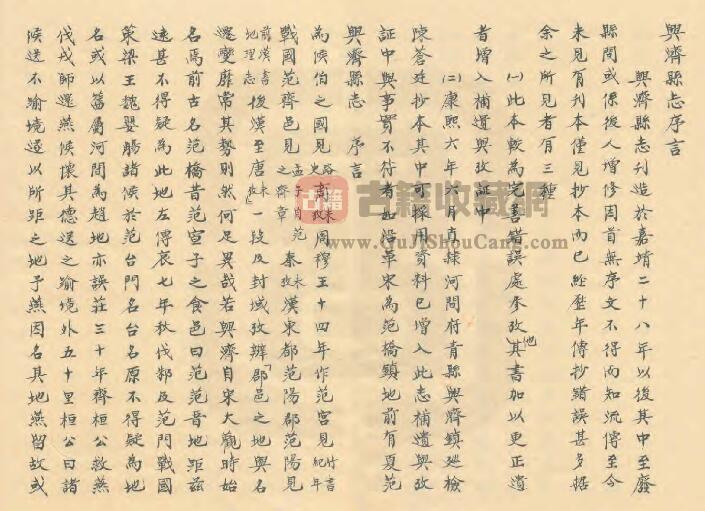 興濟縣志序言
興濟縣志刊造於嘉靖二十八年以後其中至廢
縣間或係後人增修因首無序文不得而知流傳至今
未見有刊本僅見抄本而已經歷年傳抄錯誤甚多據
余之所見者有三種
㈠此本較為完善錯誤處參攷其他書加以更正遺
者增入補遺與攷証中
㈡康熙六年六月直隸河間府青縣興濟鎮巡檢
陳蒼廷抄本其中可採用資料已增入此志補遺與攷
証中與事實不符者如沿革宋為范橋鎮地前有夏范
興濟縣志 序言
為候伯之國見路史 商 周穆王十四年作范宮見竹書紀年
戰國范齊邑見孟子自范之齊章 秦未攷漢東都范陽郡范陽見
前漢書地理志 後漢至唐未攷一段及封域攷辨郡邑之地與名
遷變靡常其勢則然何足異哉若興濟自宋大觀時始
名焉前古名范橋昔范宣子之食邑曰范范晉地距茲
遠甚不得疑為此地左傳哀七年秋伐邾及范門戰國
策梁王魏嬰觴諸候於范台門名台名原不得疑為地
名或以舊屬河間為趙地亦誤莊三十年齊桓公救燕
伐戎師還燕候懷其德送之踰境外五十里桓公曰諸
候送不踰境遂以所距之地予燕因名其地燕留故或
古籍收藏网
www.GuJiShouCang.com